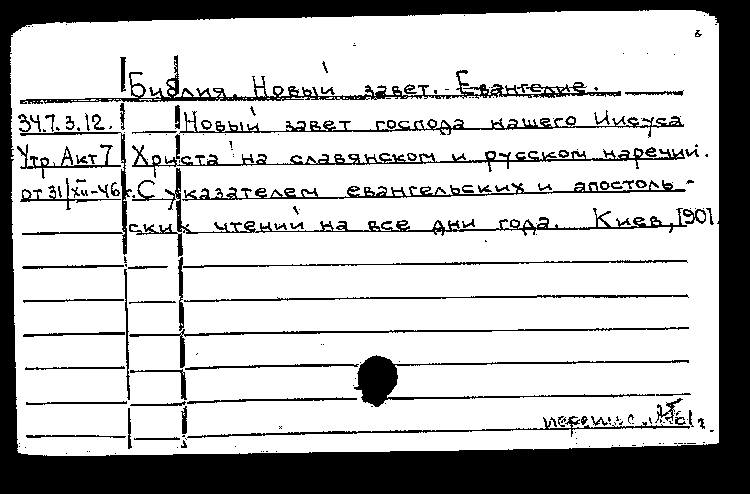 Библия. Новый завет. Евангелие.
34.7.3.12. Новый завет господа нашего Иисуса
Утр. Акт 7 Христа на славянском и русском наречии.
от 31/XII-46 г. С указателем евангельских и апостоль-
ских чтений на все дни года. Киев, 1901